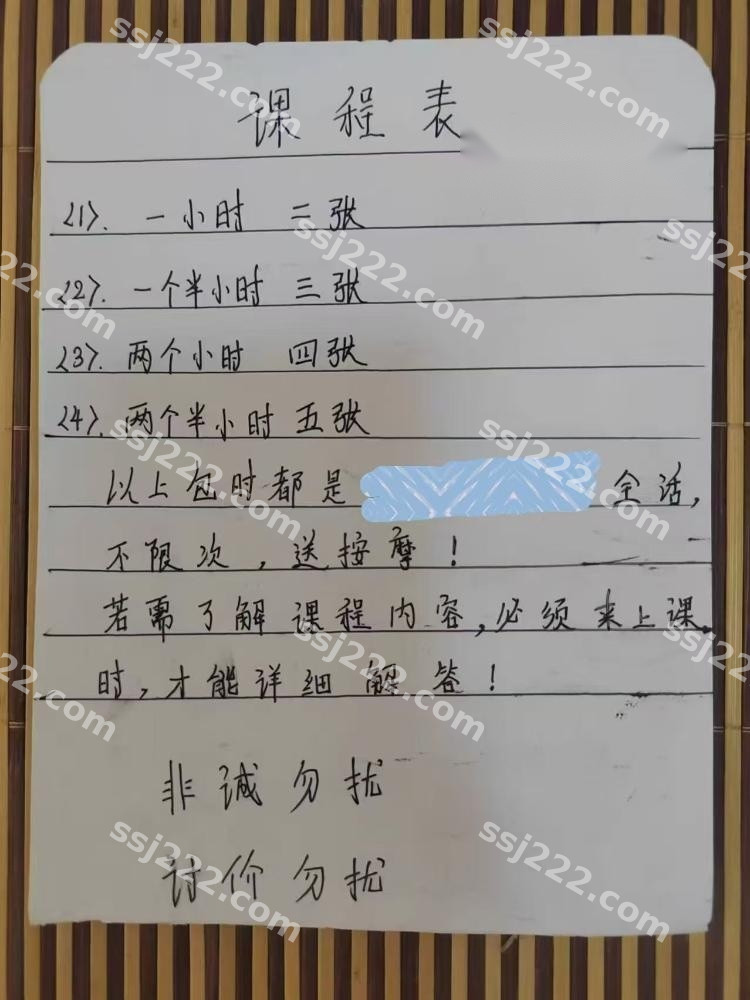 课程表
<1>. 一小时 二张
<2>. 一个半小时 三张
<3>. 两个小时 四张
<4>. 两个半小时 五张
以上包时都是 全活,
不限次,送按摩!
若需了解课程内容,必须来上课
时,才能详细解答!
非诚勿扰
讨价勿扰
ssj222.com
ssj222.com
ssj222.com
ssj222.com
ssj222.com
ssj222.com
ssj222.com
ssj222.com
ssj222.com
ssj222.com